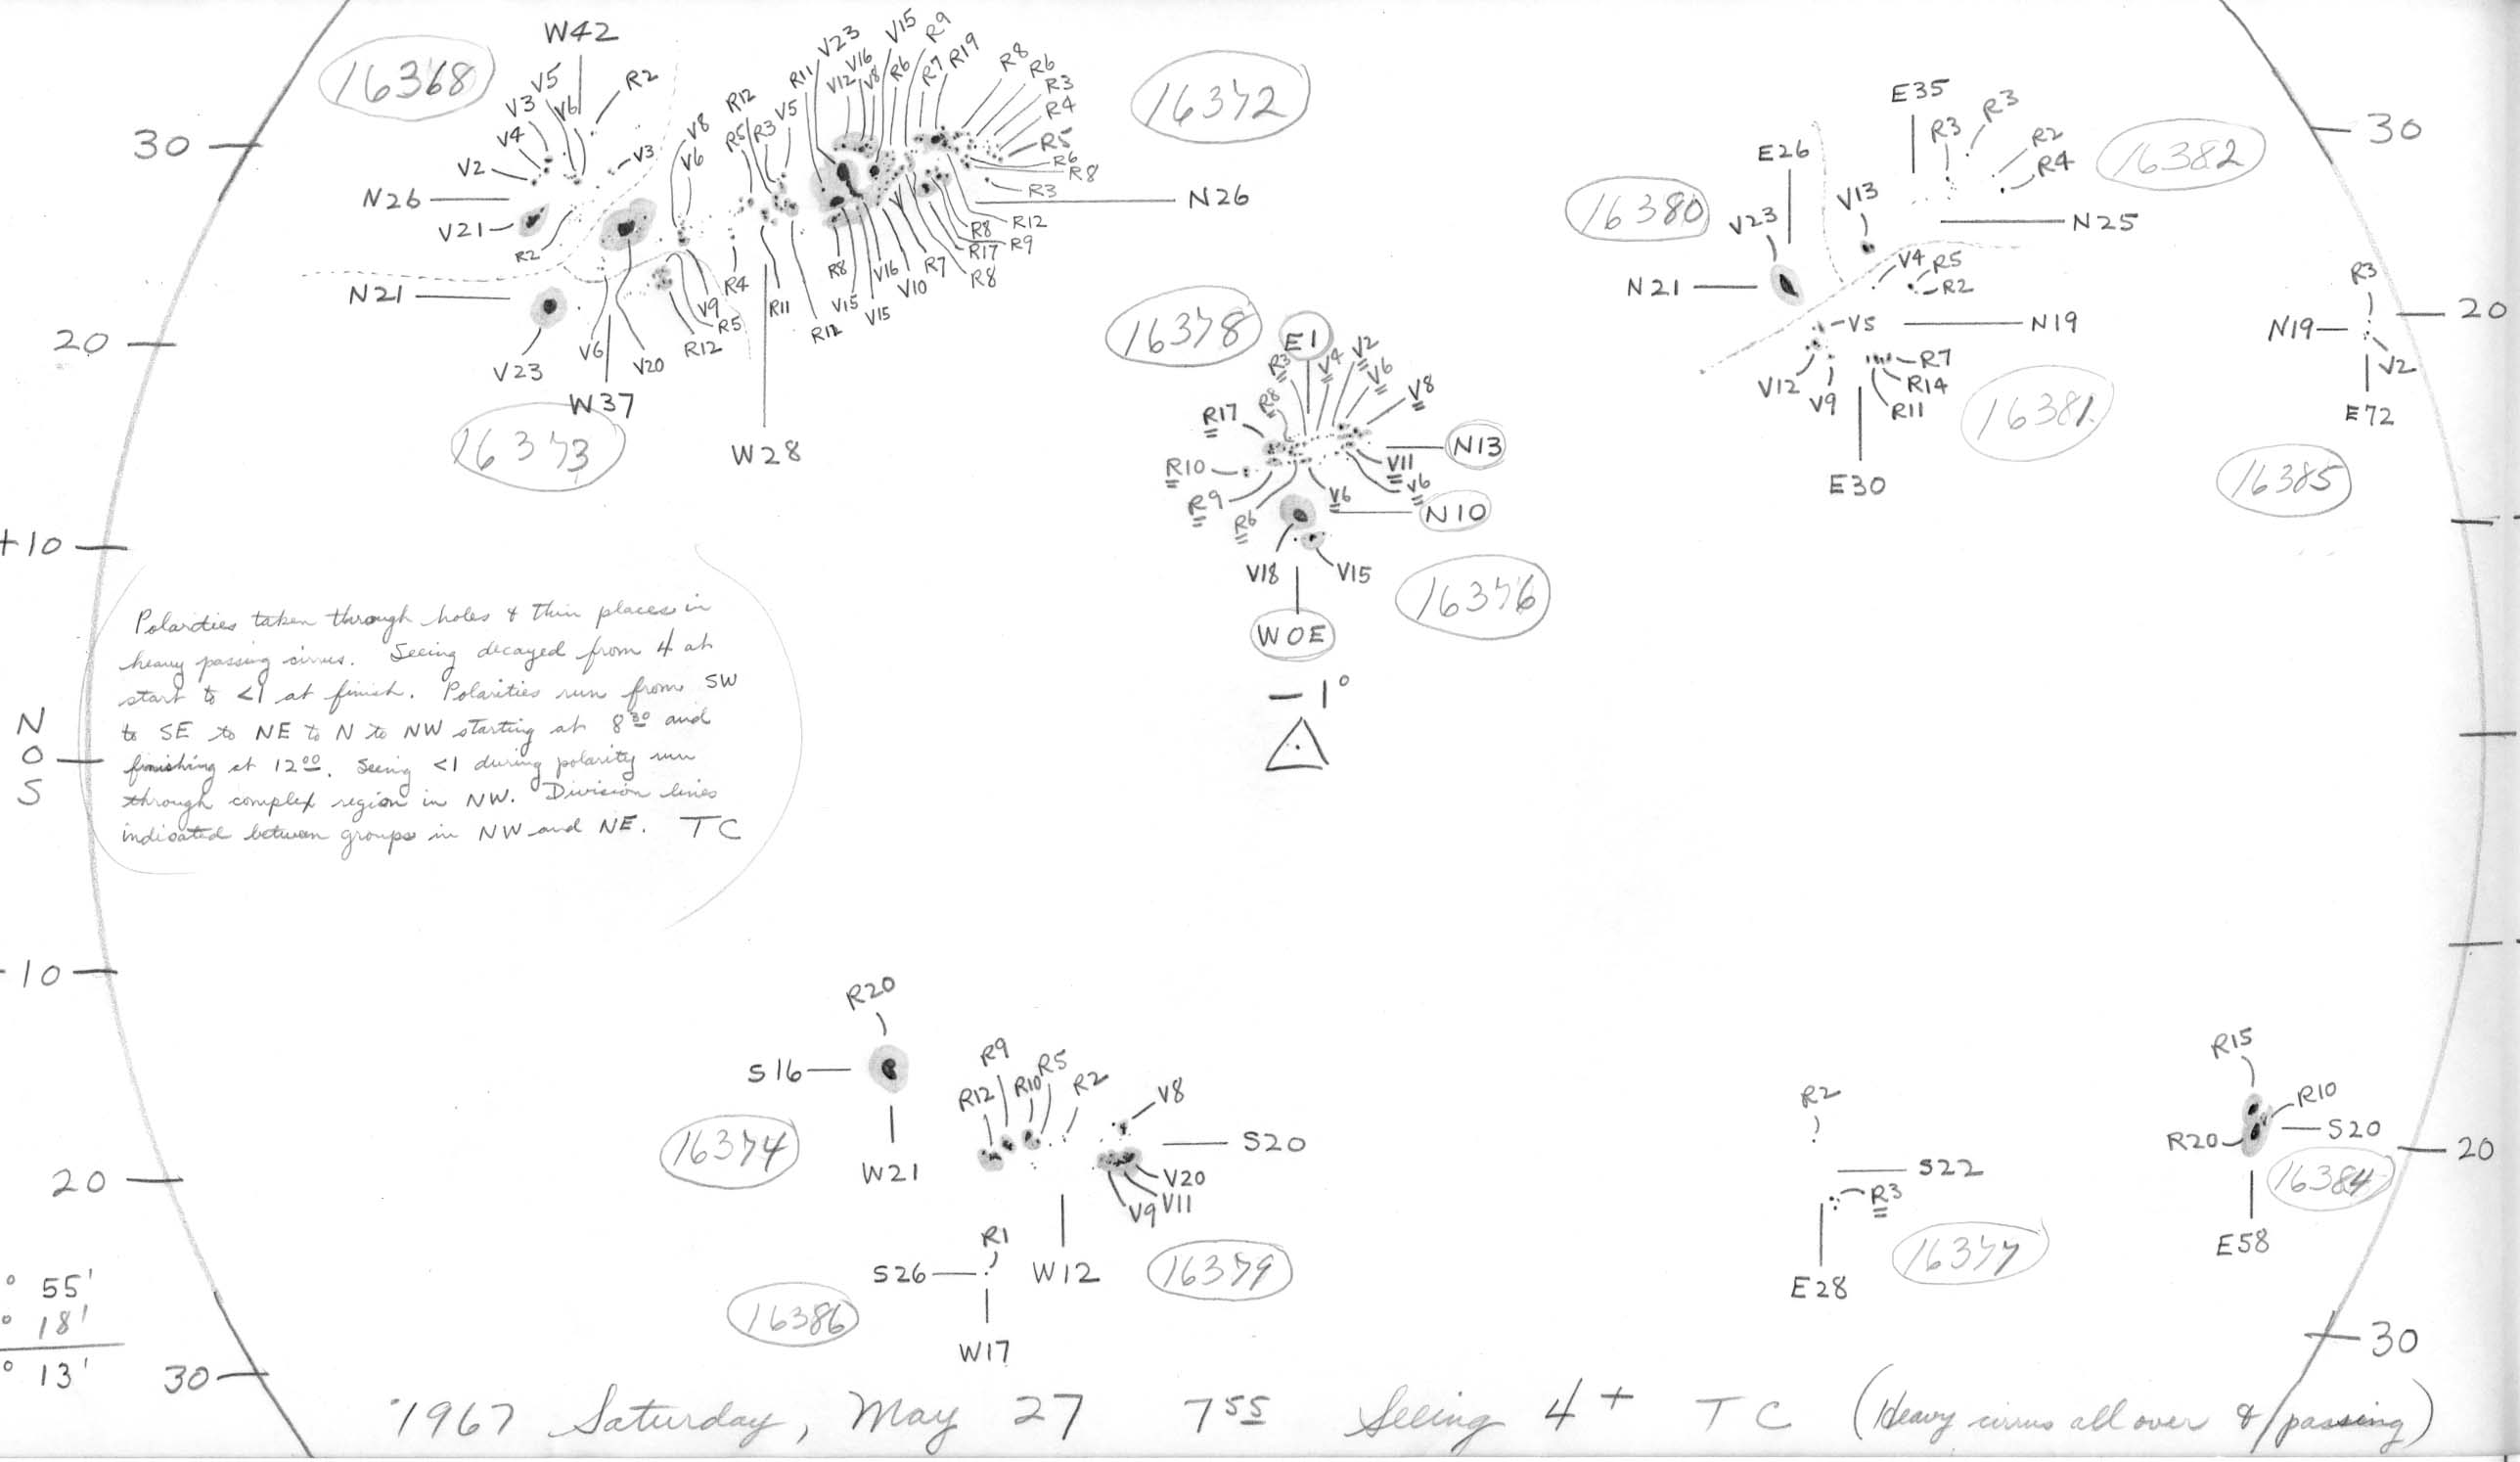 W42
16368
V5
V3
V6
R2
V4
V2
V3
N26
V21
R2
V8
V6
R12
R5
R3
V5
R11
V23
V12
V16
V8
V15
R6
R9
R7
R19
R8
R6
R3
R4
R5
R6
R8
R3
16372
N26
R12
R8
R9
R17
R8
R7
V10
V16
V15
V15
R8
R12
R11
R4
V9
R5
R12
V20
V6
W37
N21
V23
16373
W28
30
20
+10
N
0
S
-10
20
30
16378
E1
R3
V4
V2
V6
V8
R8
R17
R10
R9
R6
V6
V11
V6
N13
N10
V18
V15
W0E
16376
-1°
E35
R3
R3
R2
R4
16382
E26
V13
16380
V23
N25
N21
V4
R5
R2
V5
N19
V12
V9
R7
R14
R11
16381
E30
R3
N19
V2
E72
16385
30
20
Polarities taken through holes & thin places in
heavy passing cirrus. Seeing decayed from 4 at
start to <1 at finish. Polarities run from SW
to SE to NE to N to NW starting at 8 30 and
finishing at 12 00. Seeing <1 during polarity run
through complex region in NW. Division lines
indicated between groups in NW and NE. TC
R20
S16
16374
W21
R12
R9
R10
R5
R2
V8
S20
V20
V11
V9
W12
16379
R1
S26
W17
16386
R2
S22
R3
16377
E28
R15
R10
R20
S20
16384
E58
20
30
° 55'
° 18'
° 13'
1967 Saturday, May 27 7 55 Seeing 4+ TC (Heavy cirrus all over & passing)